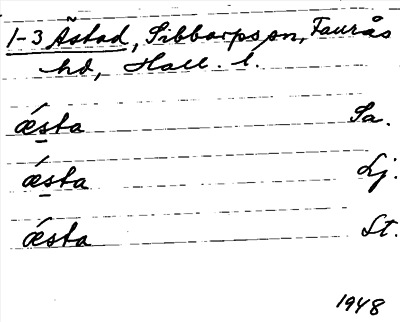 1-3 Åstad, Sibbarps sn, Faurås
hd, Hall. l.
ǽsta Sa.
ǽsta Lj.
ǽsta St.
1948